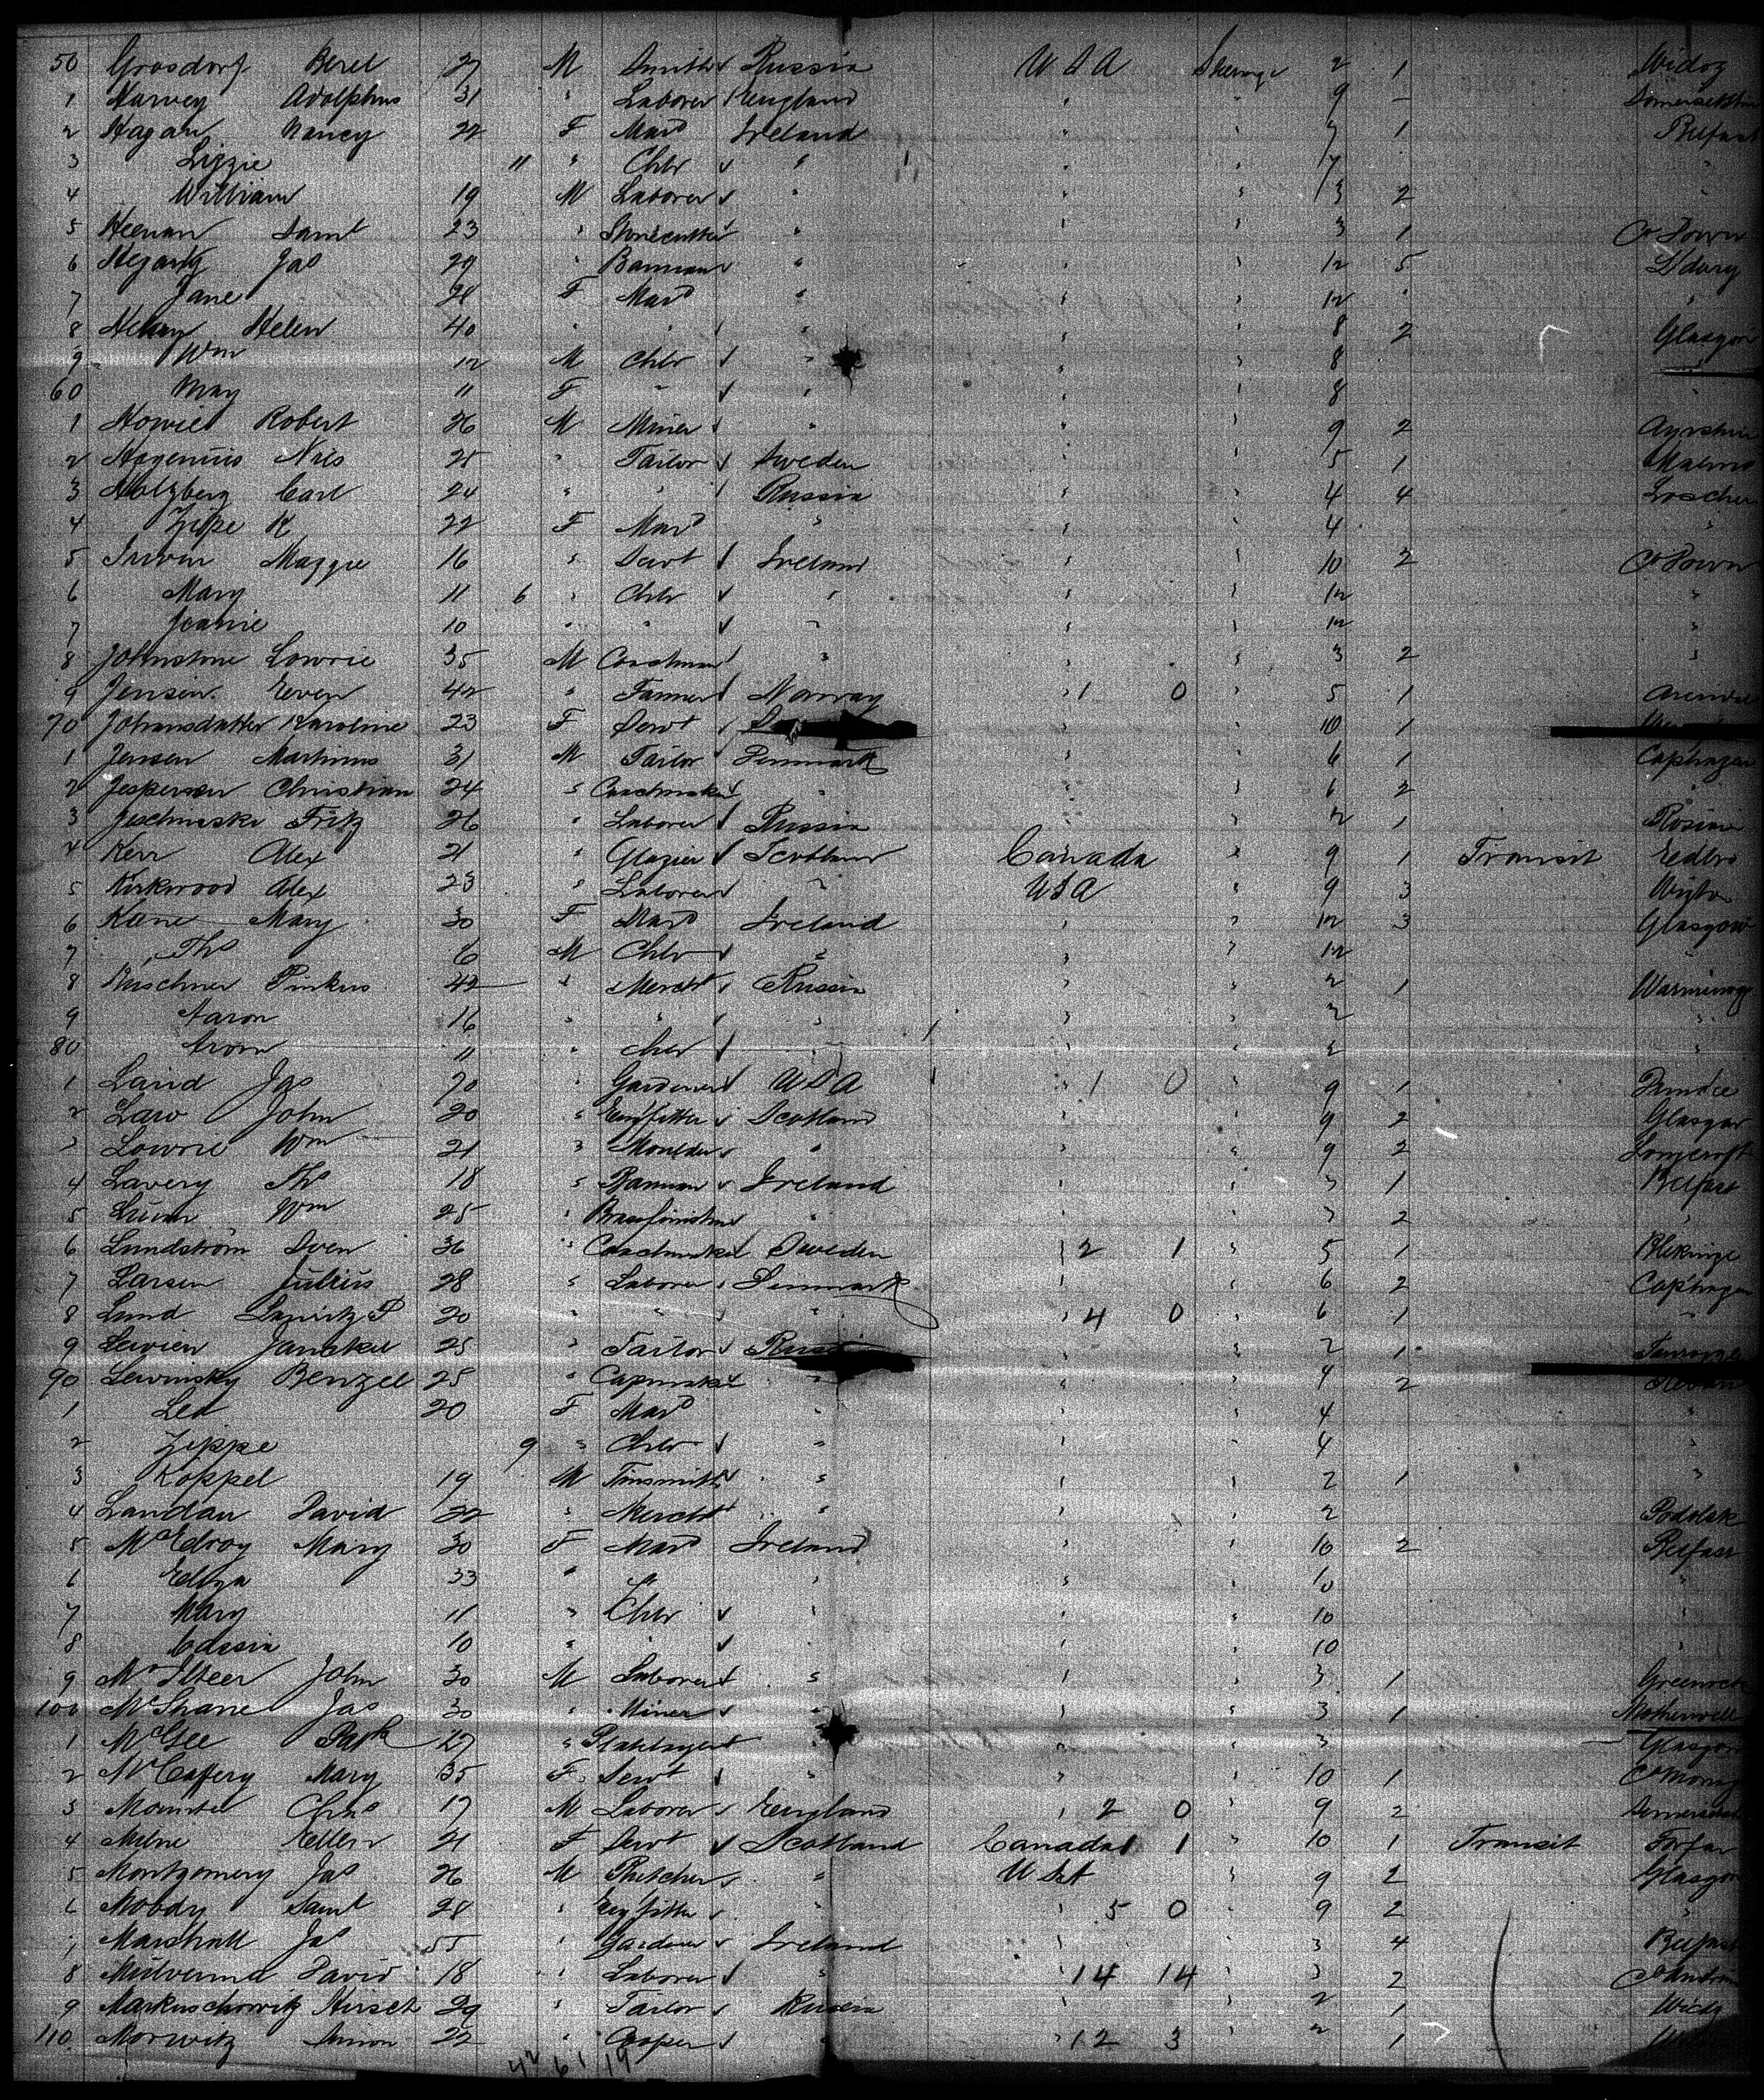 50 Grosdorf Berel 27 M Smith Russia USA Steerage 2 1 Widz
1 Harvey Adolphus 31 " Laborer England " " 9 -
2 Hagan Nancy 22 F Mard Ireland " " 7 1 Belfast
3 Lizzie 11 " Chld " " " 7
4 William 19 M Laborer " " " 3 2
5 Heenan Saml 23 " Stonecutter " " " 3 1 Co Down
6 Hegarty Jas 29 " " " " 12 5 L'dery
7 Jane 28 F Mard " " " 12 "
8 Helen 40 " " " " " 8 2 Glasgow
9 Wm 12 M Chld " " " 8
60 May 11 F " " " " 8
1 Howie Robert 26 M Miner " " " 9 2 Ayrshire
2 Hagenius Nils 25 " Tailor Sweden " " 5 1 Malmo
3 Holzberg Carl 24 " " Russia " " 4 4
4 Zipe K 22 F Mard " " " 4 "
5 Irwin Maggie 16 " Servt Ireland " " 10 2 Co Down
6 Mary 11 6 " Chld " " " 12 "
7 Jeanie 10 " " " " " 12 "
8 Johnstone Lowrie 35 M Coachman " " " 3 2 "
9 Jensen Even 42 " Farmer Norway " 1 0 " 5 1 Arendal
70 Johansdatter Karoline 23 F Servt " " 10 1
1 Jensen Martinus 31 M Tailor Denmark " " 6 1 Cophagen
2 Jespersen Christian 24 " Coachmaker " " " 6 2 "
3 Fritz 26 " Laborer Russia " " 2 1
4 Kerr Alex 21 " Glazier Scotland Canada " 9 1 Transit Edbro
5 Kirkwood Alex 23 " Laborer " USA " 9 3
6 Kane Mary 30 F Mard Ireland " " 12 3 Glasgow
7 Ths 6 M Chld " " " 12
8 Pinkus 42 " Mercht Russia " " 2 1
9 Aaron 16 " " " " " 2 "
80 Aron 11 " Chld " " " 2 "
1 Laird Jas 20 " Gardener USA " 1 0 " 9 1 Dundee
2 Law John 20 " Engfitter Scotland " " 9 2 Glasgow
3 Lowrie Wm 21 " Moulder " " " 9 2 Longcroft
4 Lavery Ths 18 " Ireland " " 3 1 Belfast
5 Wm 25 " Brassfinisher " " " 3 2 "
6 Lundström Sven 36 " Coachmaker Sweden " 2 1 " 5 1 Blekinge
7 Larsen Julius 28 " Laborer Denmark " " 6 2 Cophagen
8 Lund P 20 " " " " 4 0 " 6 1 "
9 Lewien Janskel 25 " Tailor Russia " " 2 1
90 Lewinsky Benzel 25 " Capmaker " " " 4 2
1 Lea 20 F Mard " " " 4 "
2 Zippe 9 " Chld " " " 4 "
3 Koppel 19 M Tinsmith " " " 2 1 "
4 Landau David 22 " Mercht " " " 2 Podolsk
5 McElroy Mary 30 F Mard Ireland " " 10 2 Belfast
6 33 " " " " " 10 "
7 Mary 11 " Chld " " " 10 "
8 10 " " " " " 10 "
9 John 30 M Laborer " " " 3 1 Greenock
100 McShane Jas 30 " Miner " " " 3 1 Motherwell
1 McGee Patk 27 " Platelayer " " " 3 Glasgow
2 McCafery Mary 35 F Servt " " " 10 1
3 Chas 17 M Laborer England " 2 0 " 9 2 Somerset
4 Milne Ellen 21 F Servt Scotland Canada 1 1 " 10 1 Transit Forfar
5 Montgomery Jas 26 M Butcher " USA " 9 2 Glasgow
6 Moody Saml 28 " Engfitter " " 5 0 " 9 2 "
7 Marshall Jas 55 " Gardener Ireland " " 3 4 Belfast
8 Mulvenna David 18 " Laborer " " 14 14 " 3 2 Co Antrim
9 Markuschowitz Hirsch 29 " Tailor Russia " " 2 1 Widz
110 Morwitz Simon 22 " Cooper " " 12 3 " 2 1
42 61 19